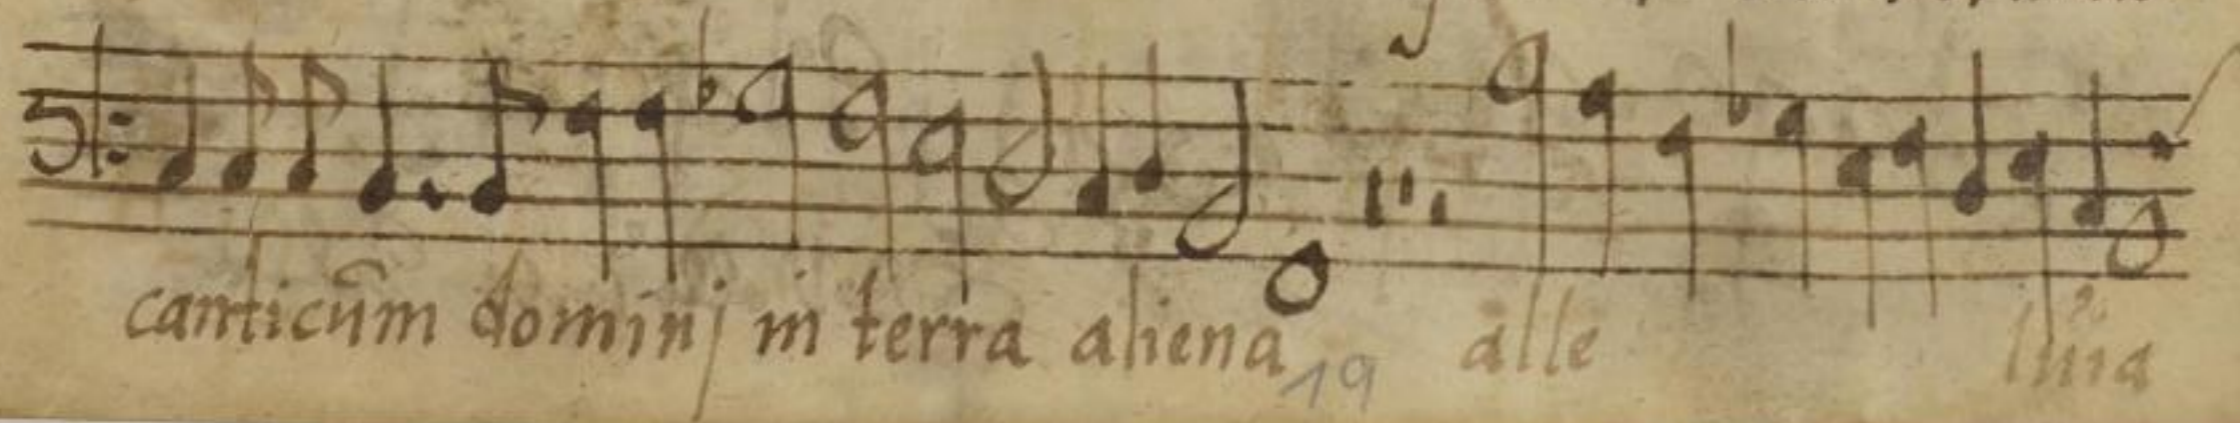 canticũm dominj in terra aliena alle luia
19